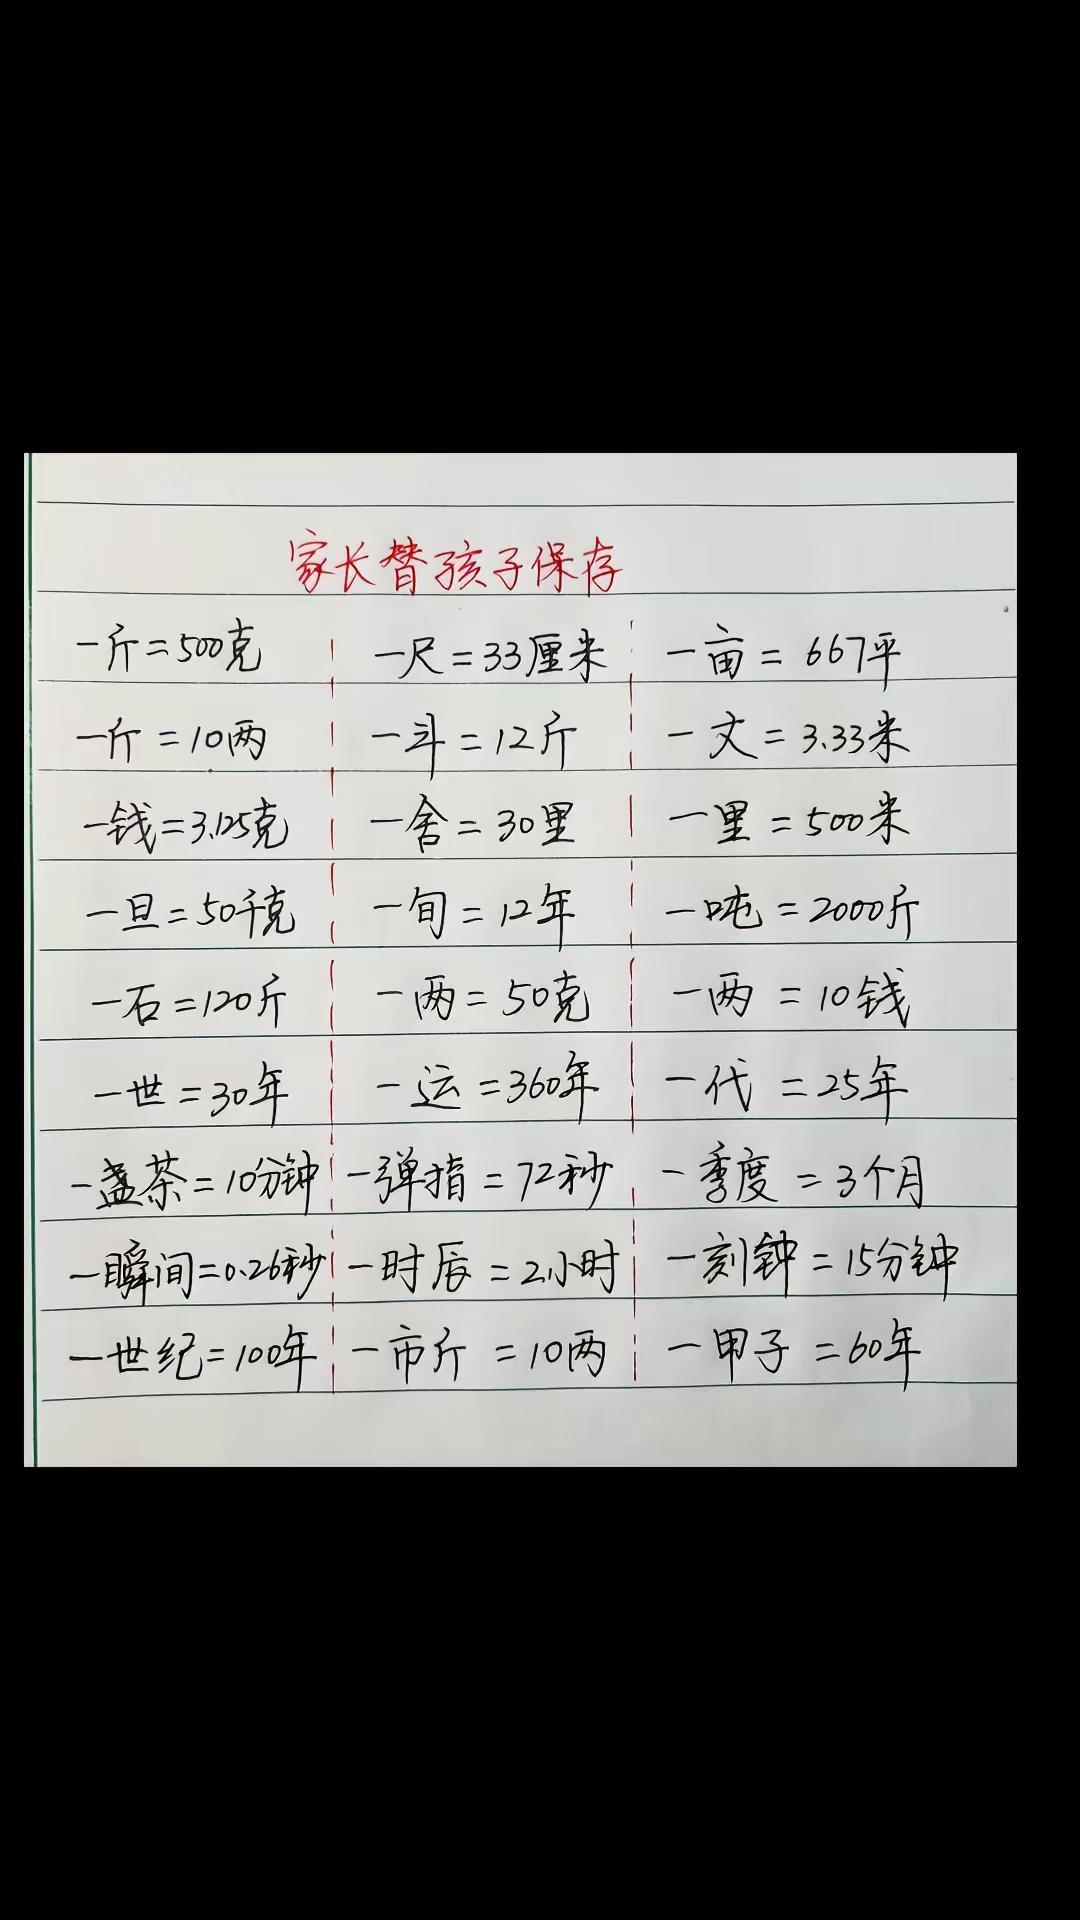 家长替孩子保存
一斤=500克 一尺=33厘米 一亩=667平
一斤=10两 一斗=12斤 一文=3.33米
一钱=3.125克 一舍=30里 一里=500米
一旦=50千克 一旬=12年 一吨=2000斤
一石=120斤 一两=50克 一两=10钱
一世=30年 一运=360年 一代=25年
一盏茶=10分钟 一弹指=72秒 一季度=3个月
一瞬间=0.26秒 一时辰=2小时 一刻钟=15分钟
一世纪=100年 一市斤=10两 一甲子=60年